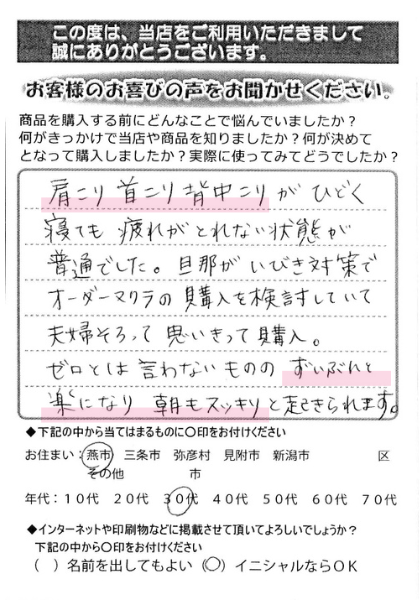 この度は、当店をご利用いただきまして
誠にありがとうございます。
お客様のお喜びの声をお聞かせください。
商品を購入する前にどんなことで悩んでいましたか？
何がきっかけで当店や商品を知りましたか？何が決めて
となって購入しましたか？実際に使ってみてどうでしたか？
肩こり 首こり 背中こりが ひどく
寝ても 疲れがとれない状態が
普通でした。旦那が いびき対策で
オーダーマクラの購入を検討していて
夫婦そろって 思いきって購入。
ゼロとは 言わないものの ずいぶんと
楽になり 朝もスッキリと起きられます。
◆下記の中から当てはまるものに〇印をお付けください
お住まい：燕市 三条市 弥彦村 見附市 新潟市 区
その他 市
年代：１０代 ２０代 ３０代 ４０代 ５０代 ６０代 ７０代
◆インターネットや印刷物などに掲載させて頂いてよろしいでしょうか？
下記の中から〇印をお付けください
（ ）名前を出してもよい（〇）イニシャルならＯＫ